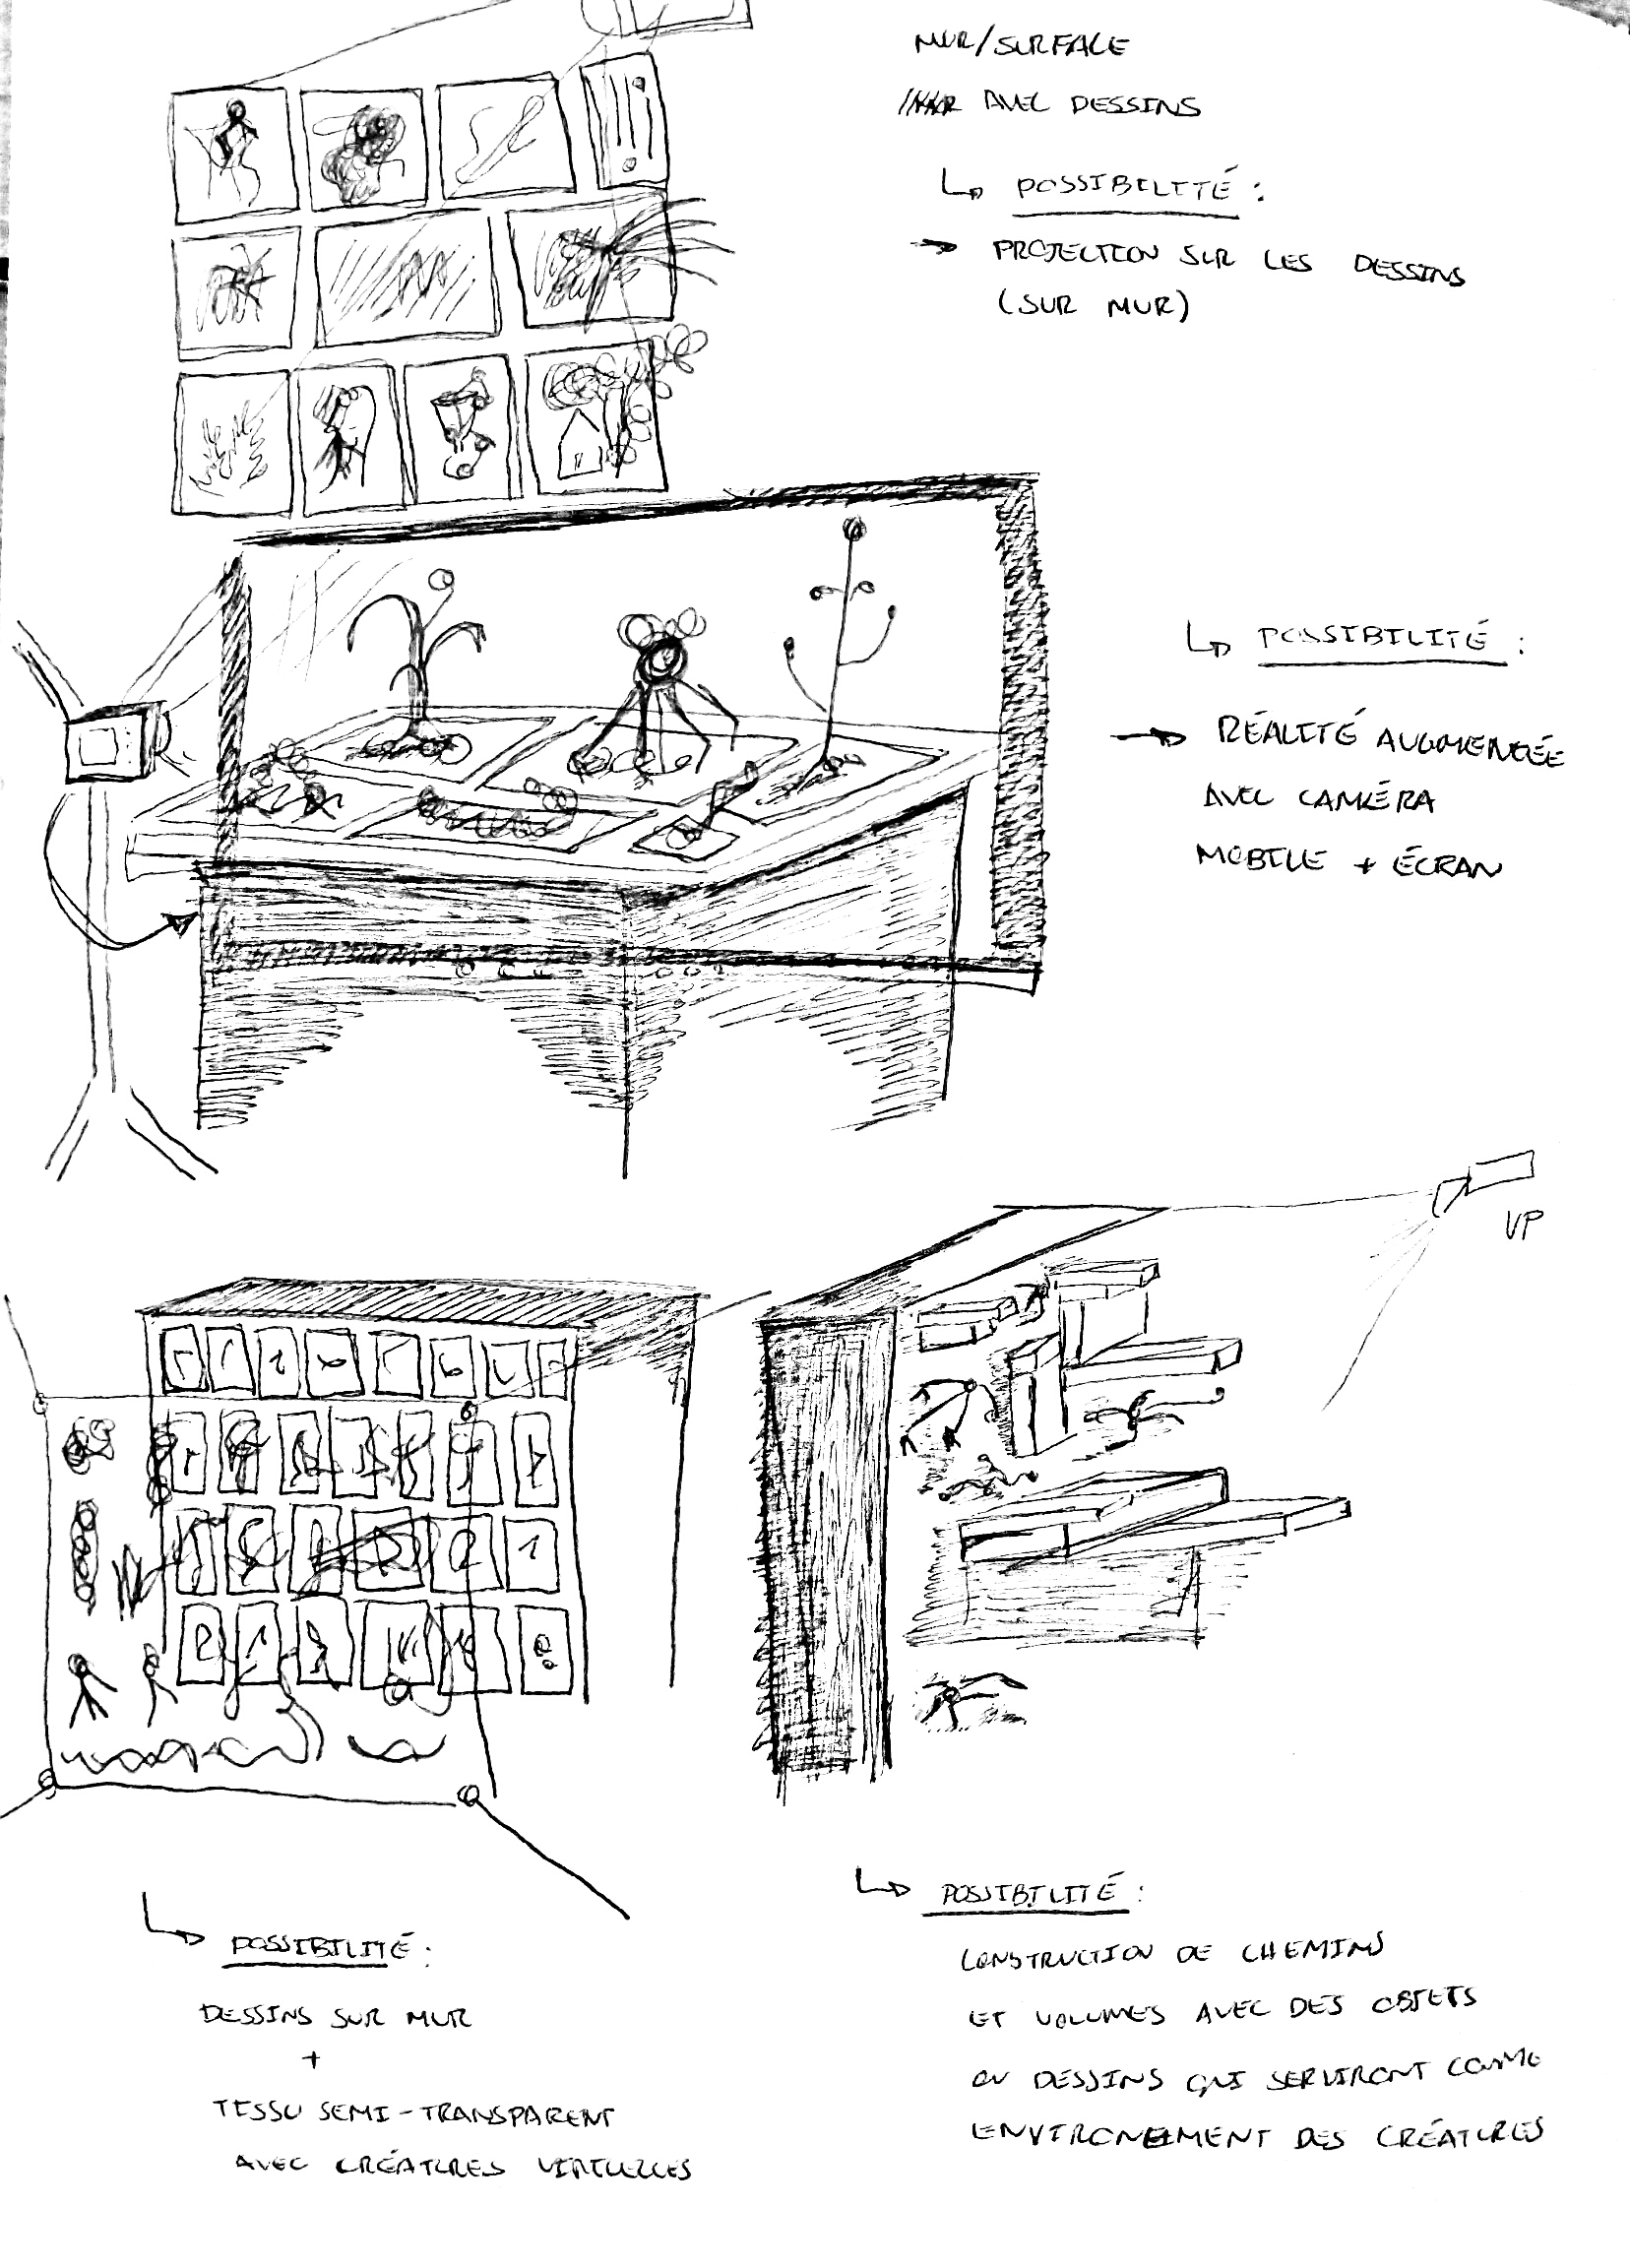 MUR/SURFACE
AVEC DESSINS
POSSIBILITÉ :
PROJECTION SUR LES DESSINS
(SUR MUR)
POSSIBILITÉ :
RÉALITÉ AUGMENTÉE
AVEC CAMÉRA
MOBILE + ÉCRAN
VP
POSSIBILITÉ :
DESSINS SUR MUR
+
TISSU SEMI-TRANSPARENT
AVEC CRÉATURES VIRTUELLES
POSSIBILITÉ :
CONSTRUCTION DE CHEMINS
ET VOLUMES AVEC DES OBJETS
OU DESSINS QUI SERVIRONT COMME
ENVIRONEMENT DES CRÉATURES